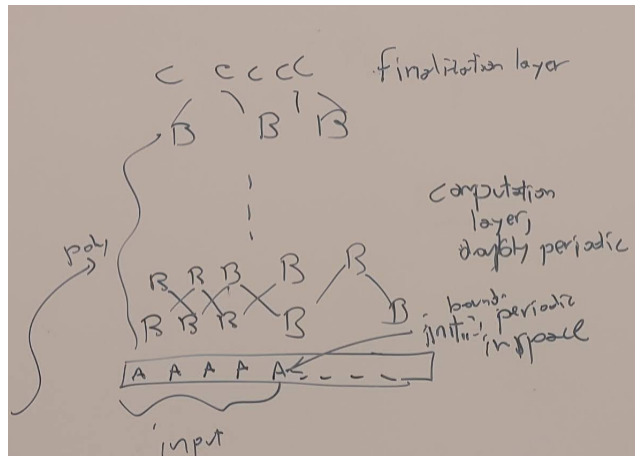 C C C C C finalization layer
B B B
computation
layer,
doubly periodic
poly
B B B B B
B B B B B
periodic
in space
A A A A A - - - -
input